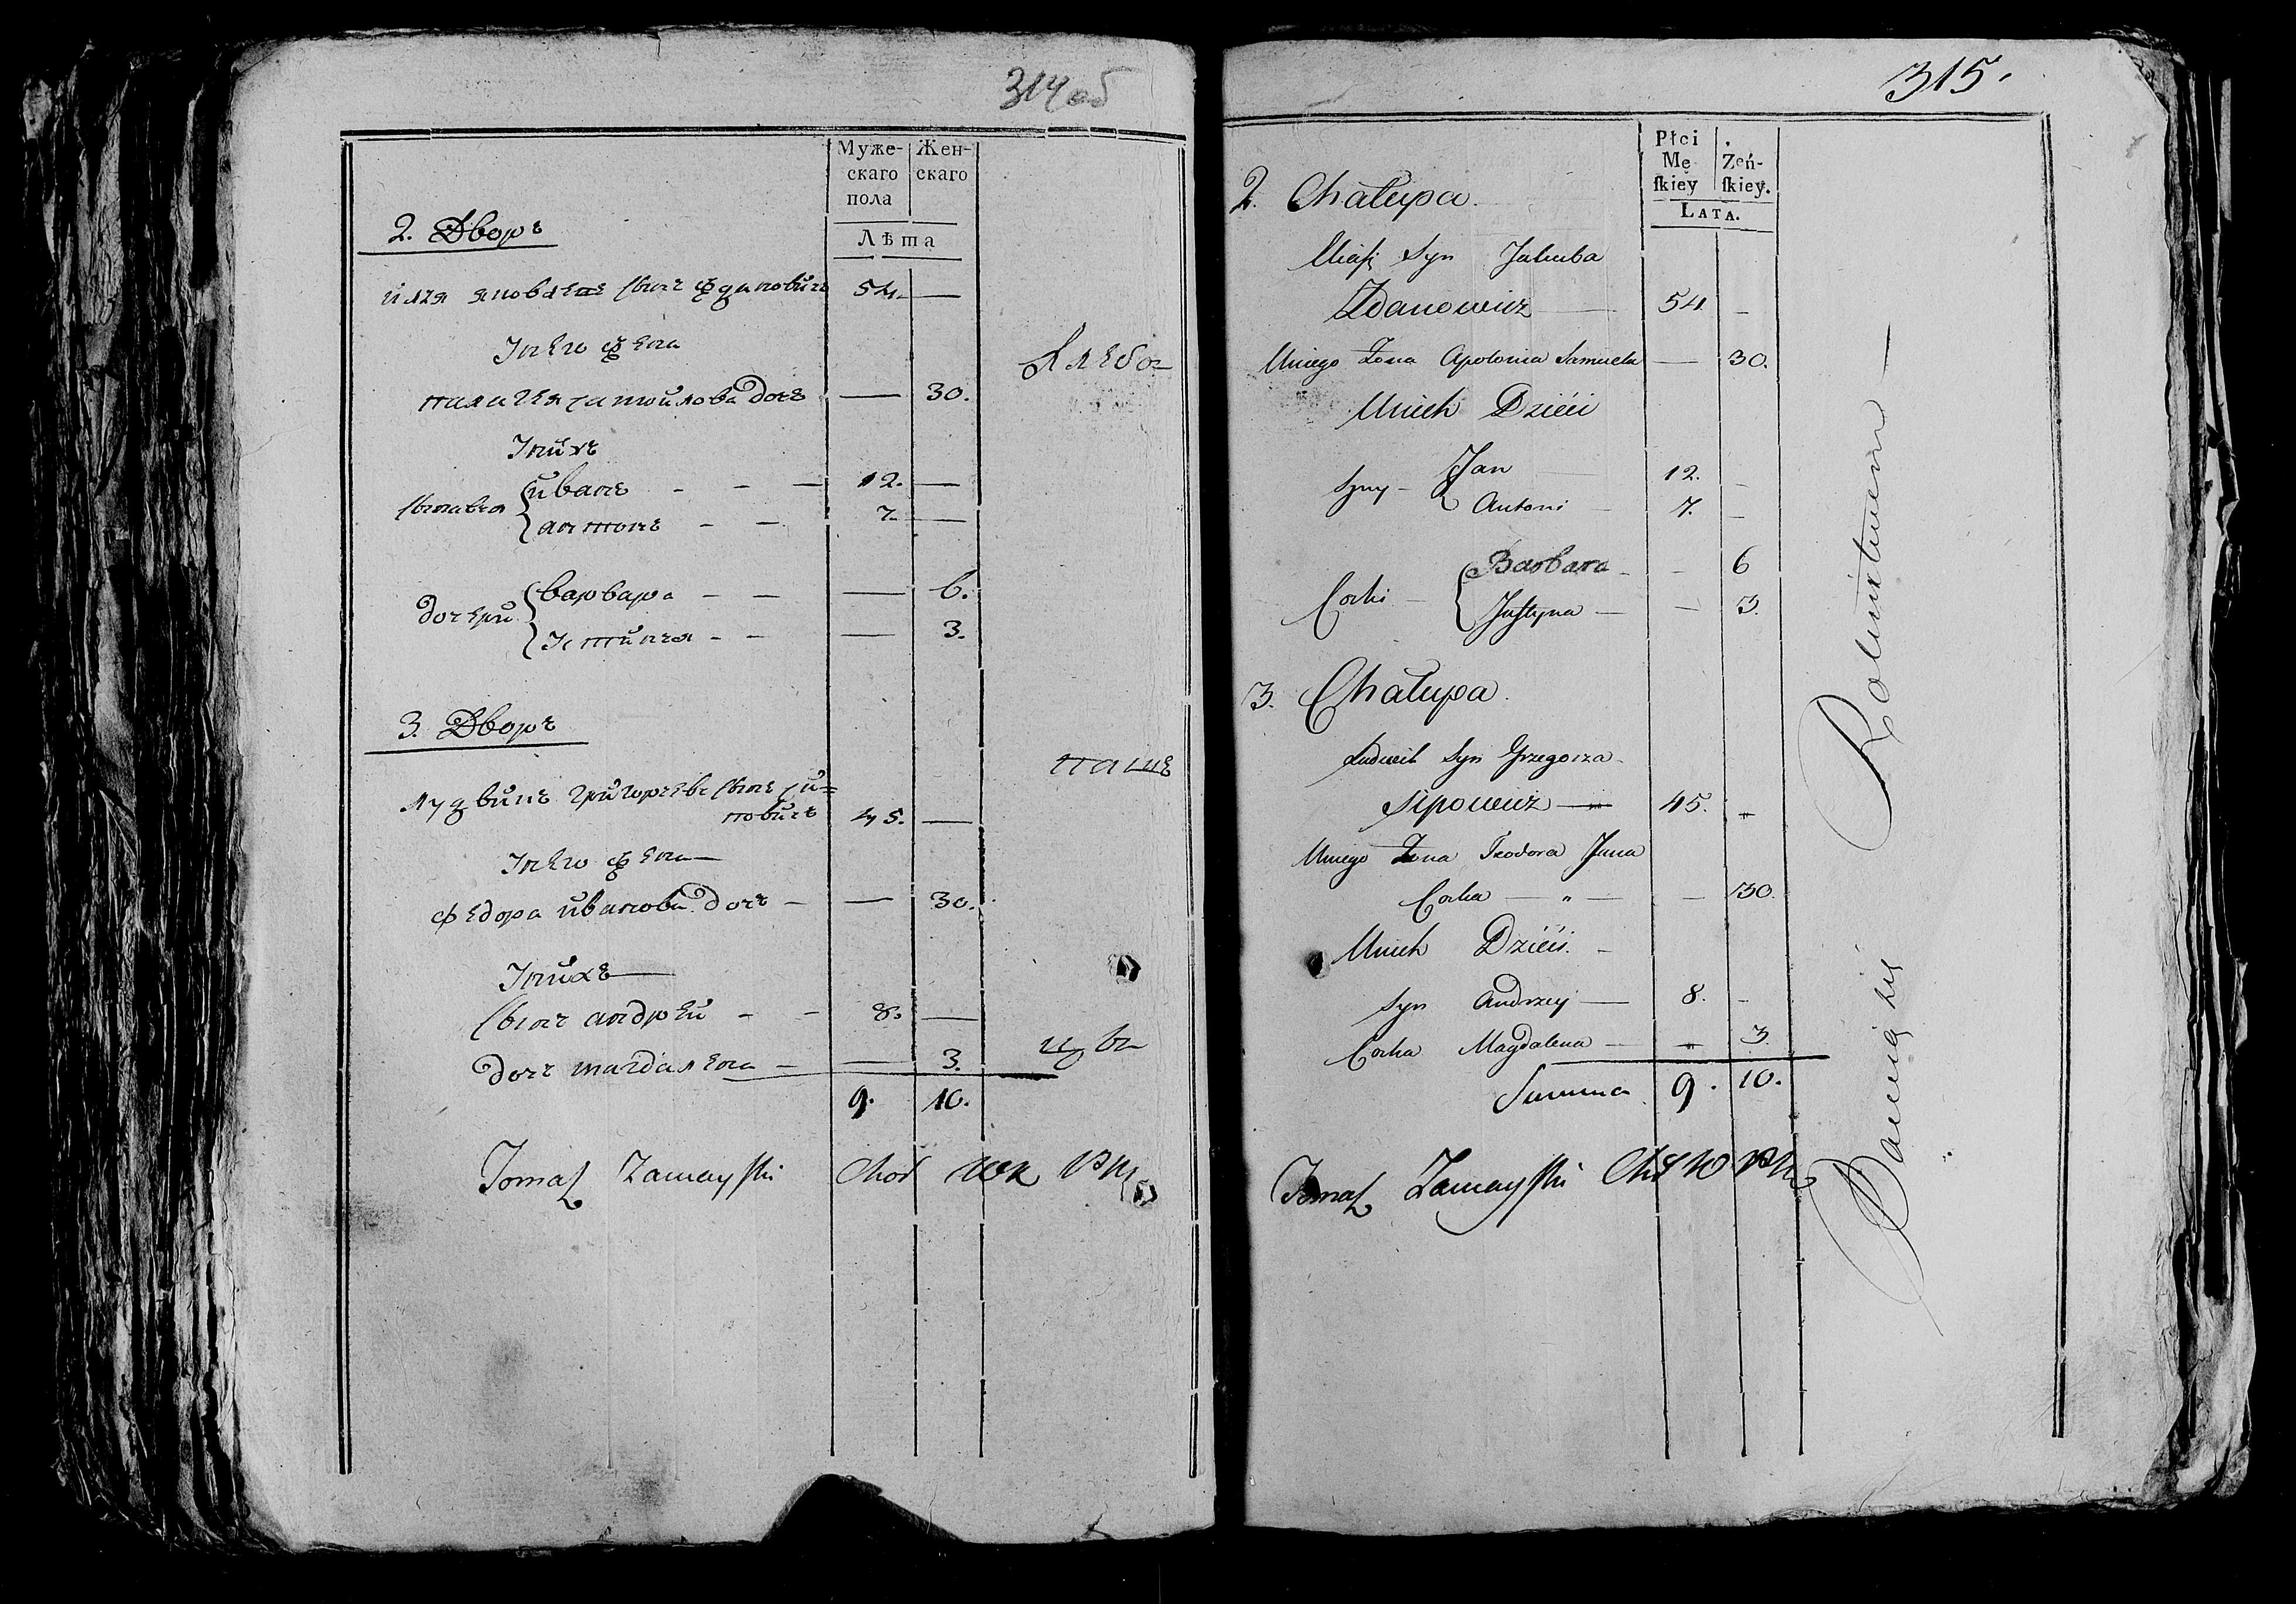 314 об
Муже-
скаго
пола
Жен-
скаго
Лѣта
2. Дворъ
илья яковлевъ сынъ жданович 54. —
У нѣго жена
палагея самойлова дочь — 30.
У нихъ
сыновья { иванъ - - — 12. —
антонъ - - 7. —
дочери { варвара - - — 6.
Устинья - - — 3.
хлебо=
3. Дворъ
лудвикъ григорьевъ сынъ си=
повичъ 45. —
У нѣго жена —
федора иванова дочь - — 30.
У нихъ —
сынъ андрей - - 8. —
дочь магдалена - — 3.
9. 10.
паше
цы
Tomaſz Zamayſki Chor
315.
Płci
Mę
ſkiey
Żeń-
ſkiey.
LATA.
2. Chałupa.
Eliaſz Syn Jakuba
Zdanowicz — 54 -
U niego Żona Apolonia Samuela — 30.
U nich Dzieci
Syny - { Jan — 12. -
Antoni - 7. -
Corki — { Barbara - - 6
Juſtyna — - 3.
3. Chałupa.
Ludwik Syn Grzegorza
Sipowicz — 45. -
U niego Żona Teodora Jana
Corka — " — - 30.
U nich Dzieci. -
Syn Andrzey — 8. -
Corka Magdalena — - 3.
Summa 9. 10.
Tomaſz Zamayſki
Rolnictwem —